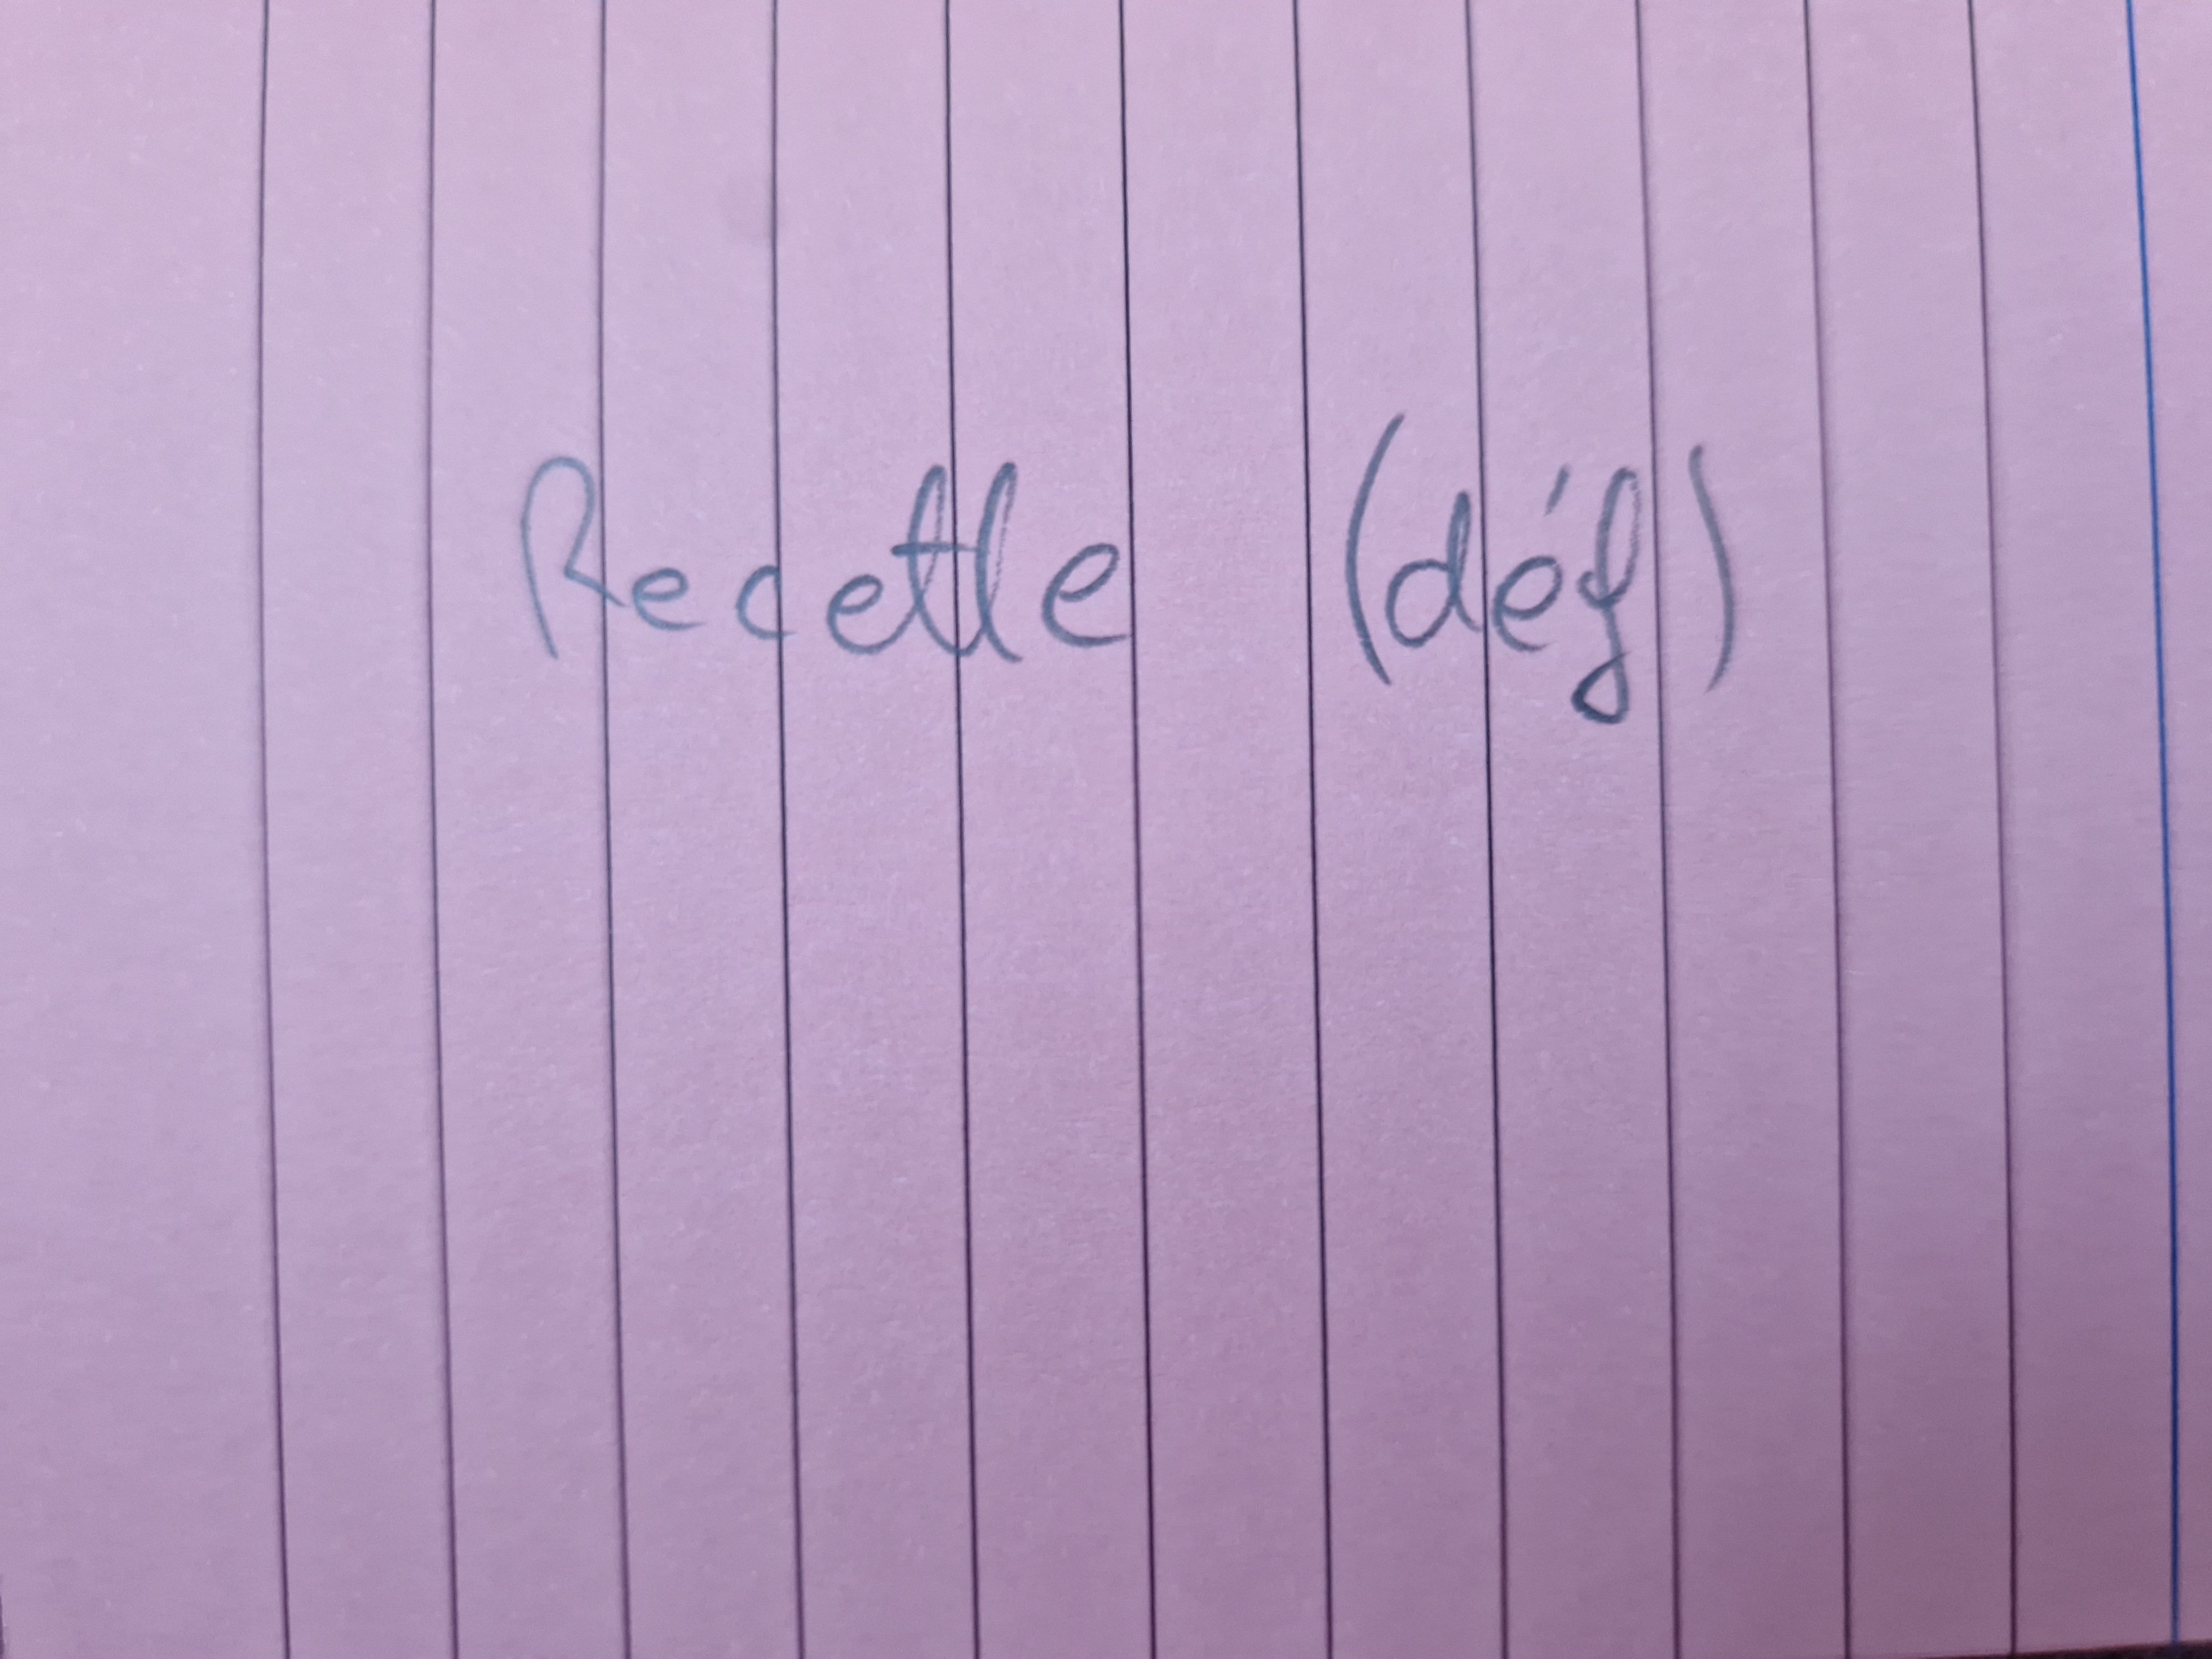 Recette (déf)